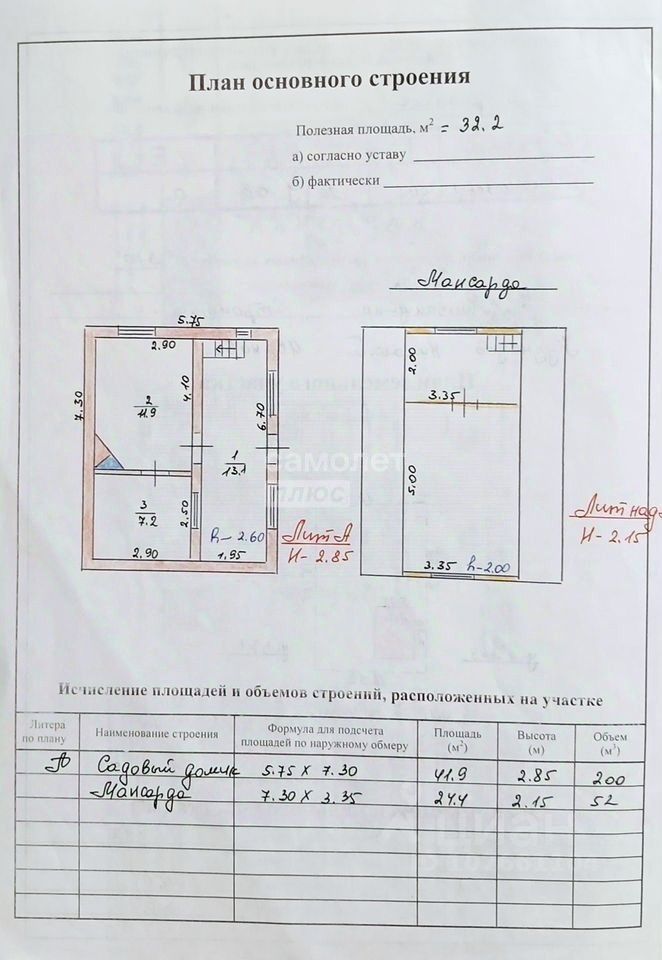 План основного строения
Полезная площадь, м² = 32.2
а) согласно уставу
б) фактически
Мансарда
5.75
2.90
7.30
4.10
6.70
2
11.9
1
13.1
3
7.2
2.50
2.90
1.95
h- 2.60
Лит А
H- 2.85
2.00
3.35
5.00
3.35
h-2.00
Лит над
H- 2.15
самолет
плюс
Исчисление площадей и объемов строений, расположенных на участке
Литера по плану | Наименование строения | Формула для подсчета площадей по наружному обмеру | Площадь (м²) | Высота (м) | Объем (м³)
А Садовый домик 5.75 х 7.30 41.9 2.85 200
Мансарда 7.30 х 3.35 24.4 2.15 52